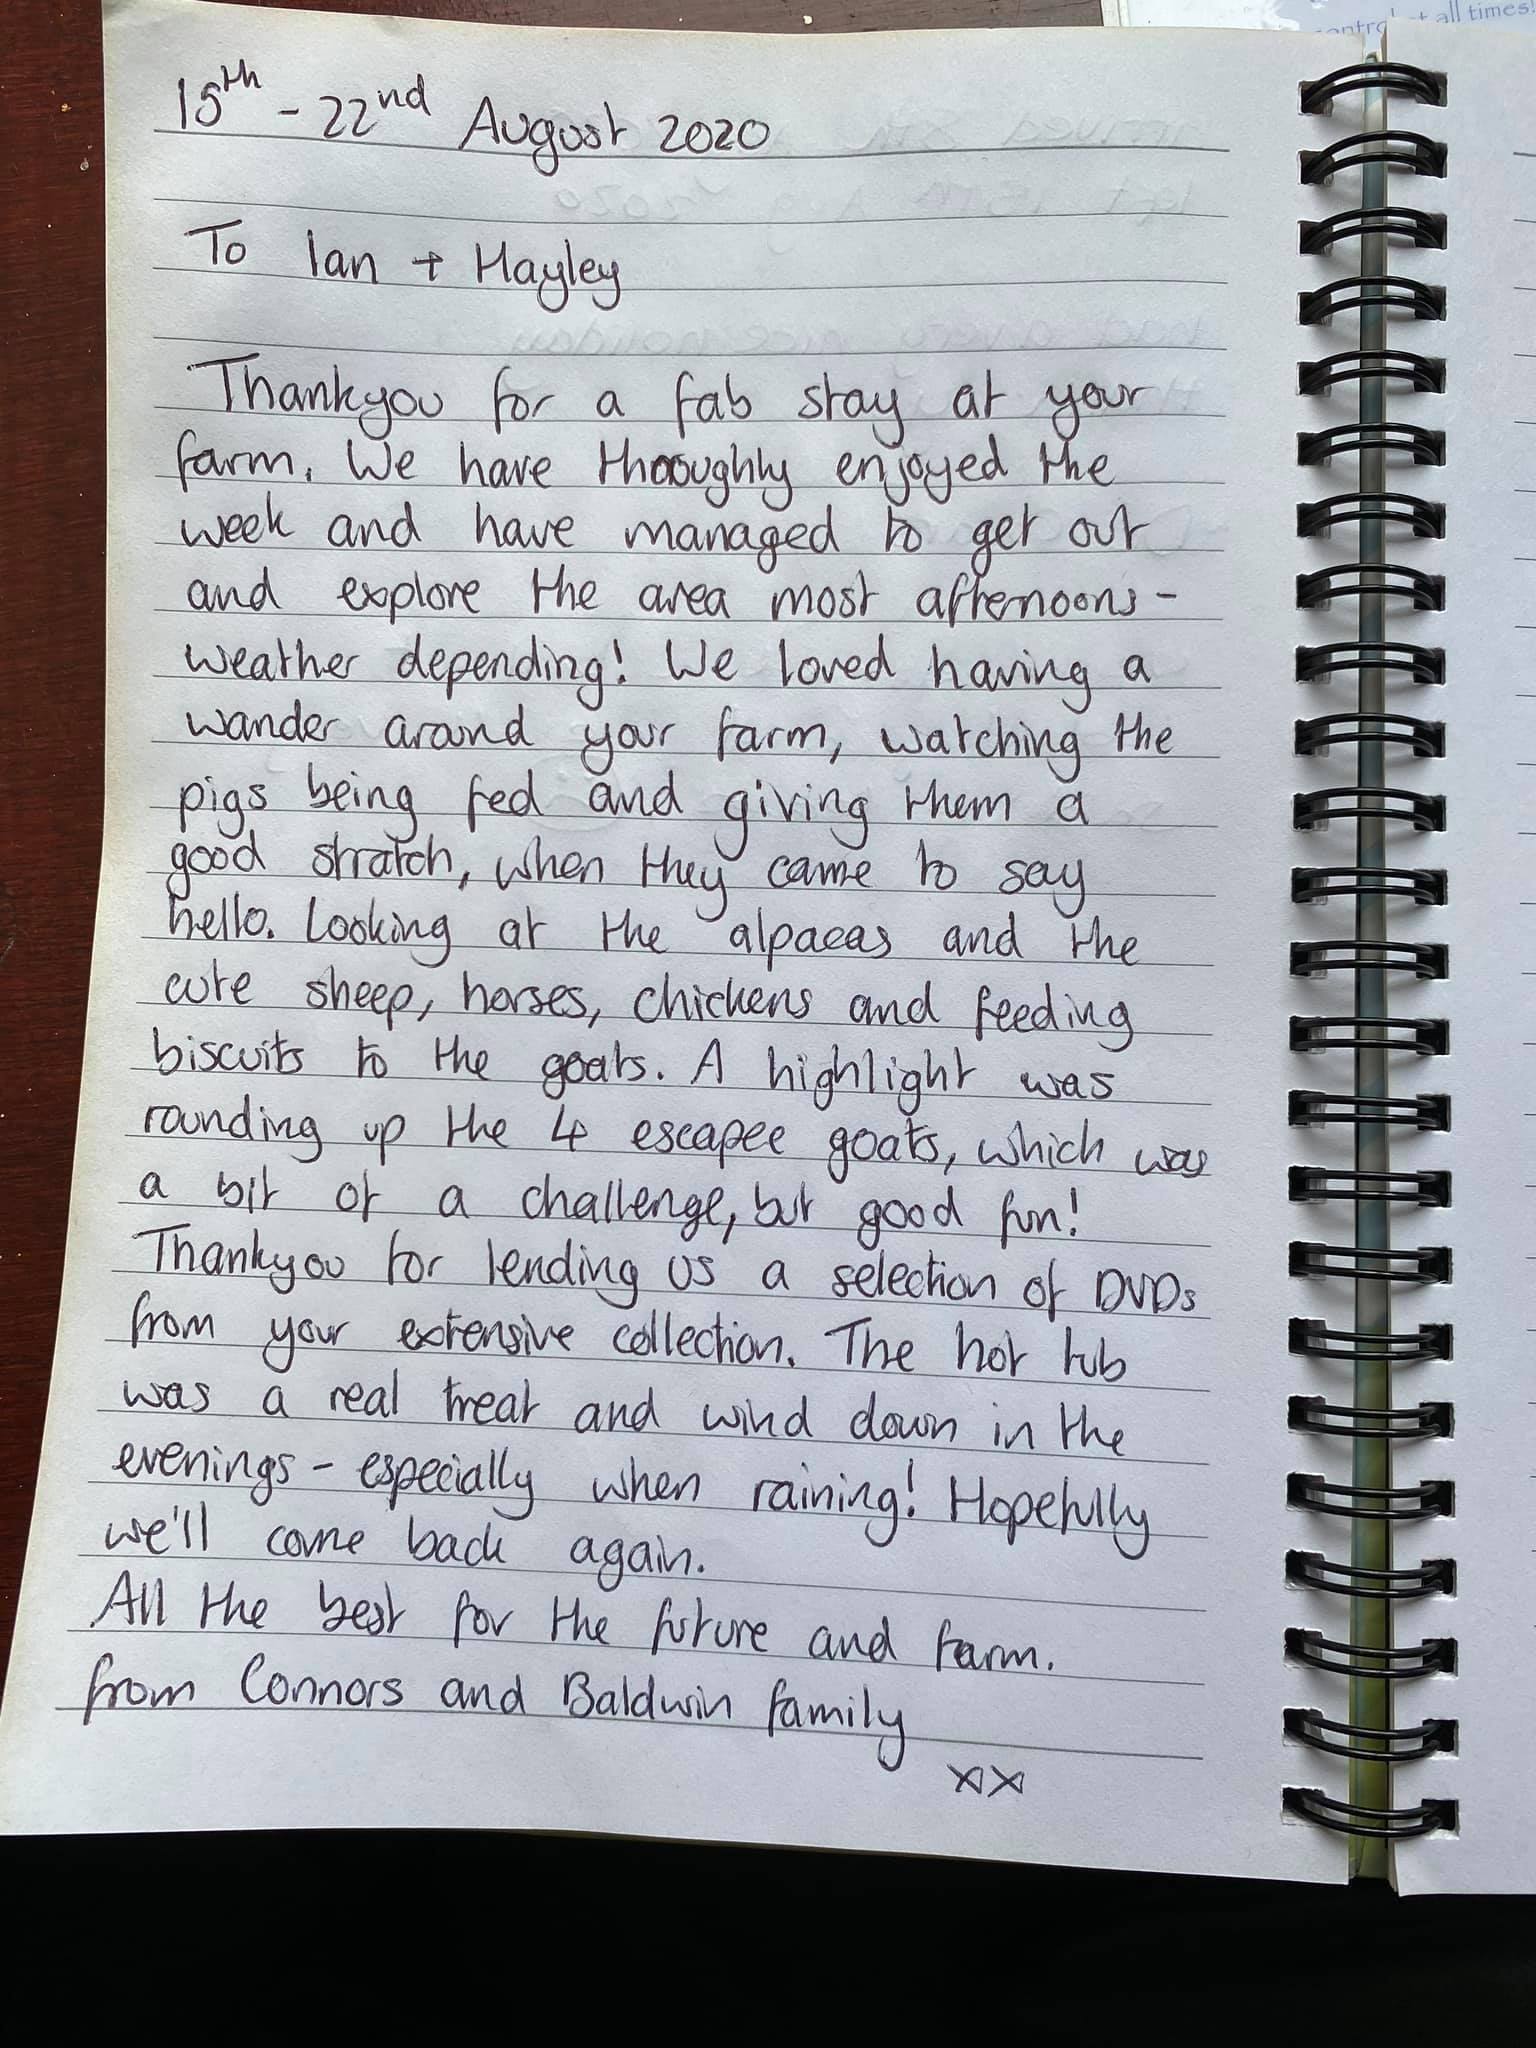 control at all times!
15th - 22nd August 2020
To Ian + Hayley
Thankyou for a fab stay at your
farm. We have thoroughly enjoyed the
week and have managed to get out
and explore the area most afternoons -
weather depending! We loved having a
wander around your farm, watching the
pigs being fed and giving them a
good stratch, when they came to say
hello. Looking at the alpacas and the
cute sheep, horses, chickens and feeding
biscuits to the goats. A highlight was
rounding up the 4 escapee goats, which was
a bit of a challenge, but good fun!
Thankyou for lending us a selection of DVDs
from your extensive collection. The hot tub
was a real treat and wind down in the
evenings - especially when raining! Hopefully
we'll come back again.
All the best for the future and farm.
from Connors and Baldwin family
xx